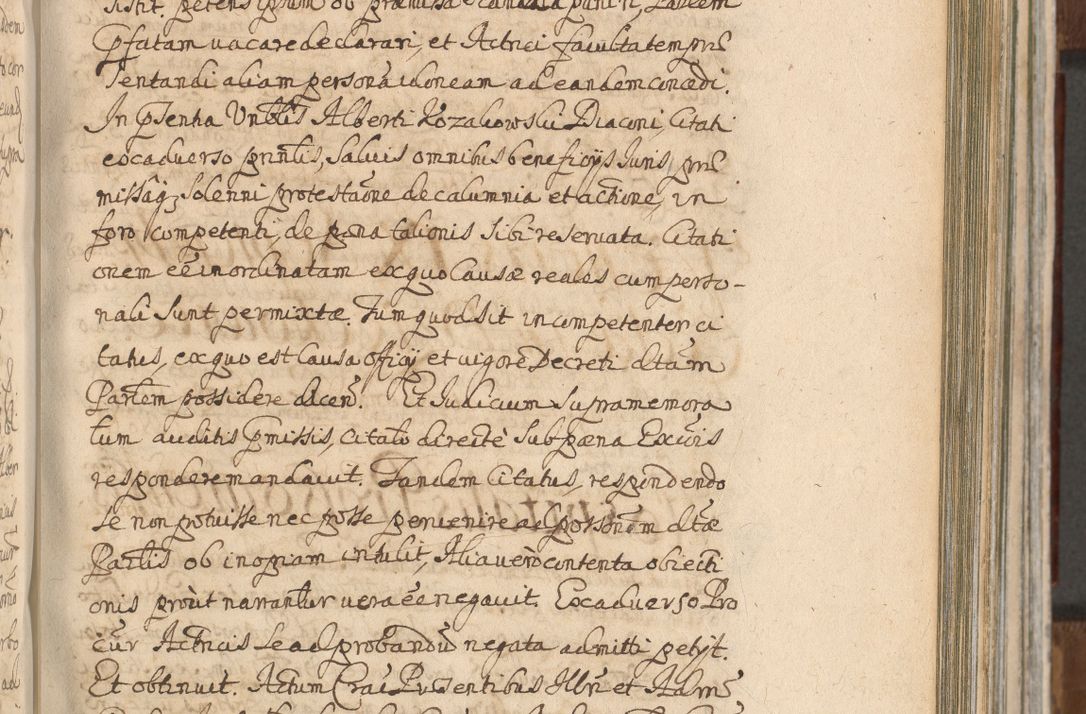 Instit. petens ipsum ob præmissa et candata puniri, Eandem
Pfatam vacare declarari, et Actrici facultatem præ
sentandi aliam personã idoneam ad eandem concedi.
In pſentia Vnblis Alberti Kozakowski Diaconi, Citati
ex aduerso prñtis, Saluis omnibus beneficijs Iuris, præ
missâqz Solenni protestaõne de calumnia et actione, in
foro competenti, de pœna talionis sibi reseruata. Citati
onem eẽ inordinatam ex quo Causæ reales cum perso-
nali Sunt permixtæ. Tum quod sit incompetenter ci
tatus, ex quo est Causa officij et uigore Decreti dtam
Parlem possidere dicen̄. Et Iudicium Supramemora
tum auditis Pmissis, citato directè Sub pœna Excõis
respondere mandauit. Tandem Citatus, respondendo
Se non potuisse nec posse peruenire ad possonem dtæ
Parlis ob inopiam intulit, Alia uerò contenta obiecti
onis prout narrantur uera eẽ negauit. Ex aduerso Pro
cur Actricis Se ad probandũ negata admitti petijt.
Et obtinuit. Actum Crac Præsentibus Illri et Adm